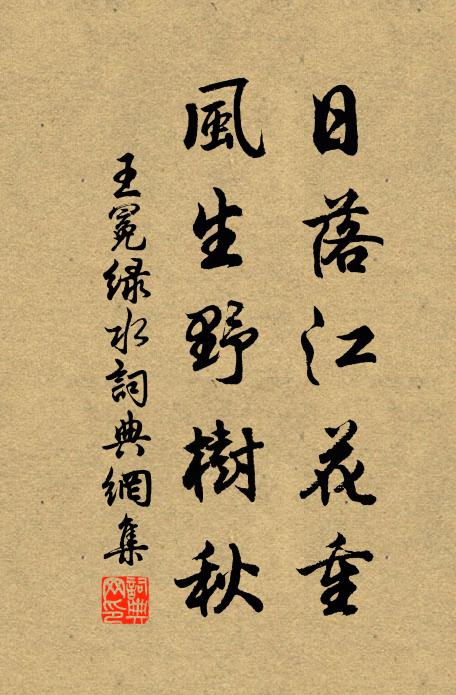 日落江花重
風生野樹秋
王冕綠水詞典網集
詞典網印